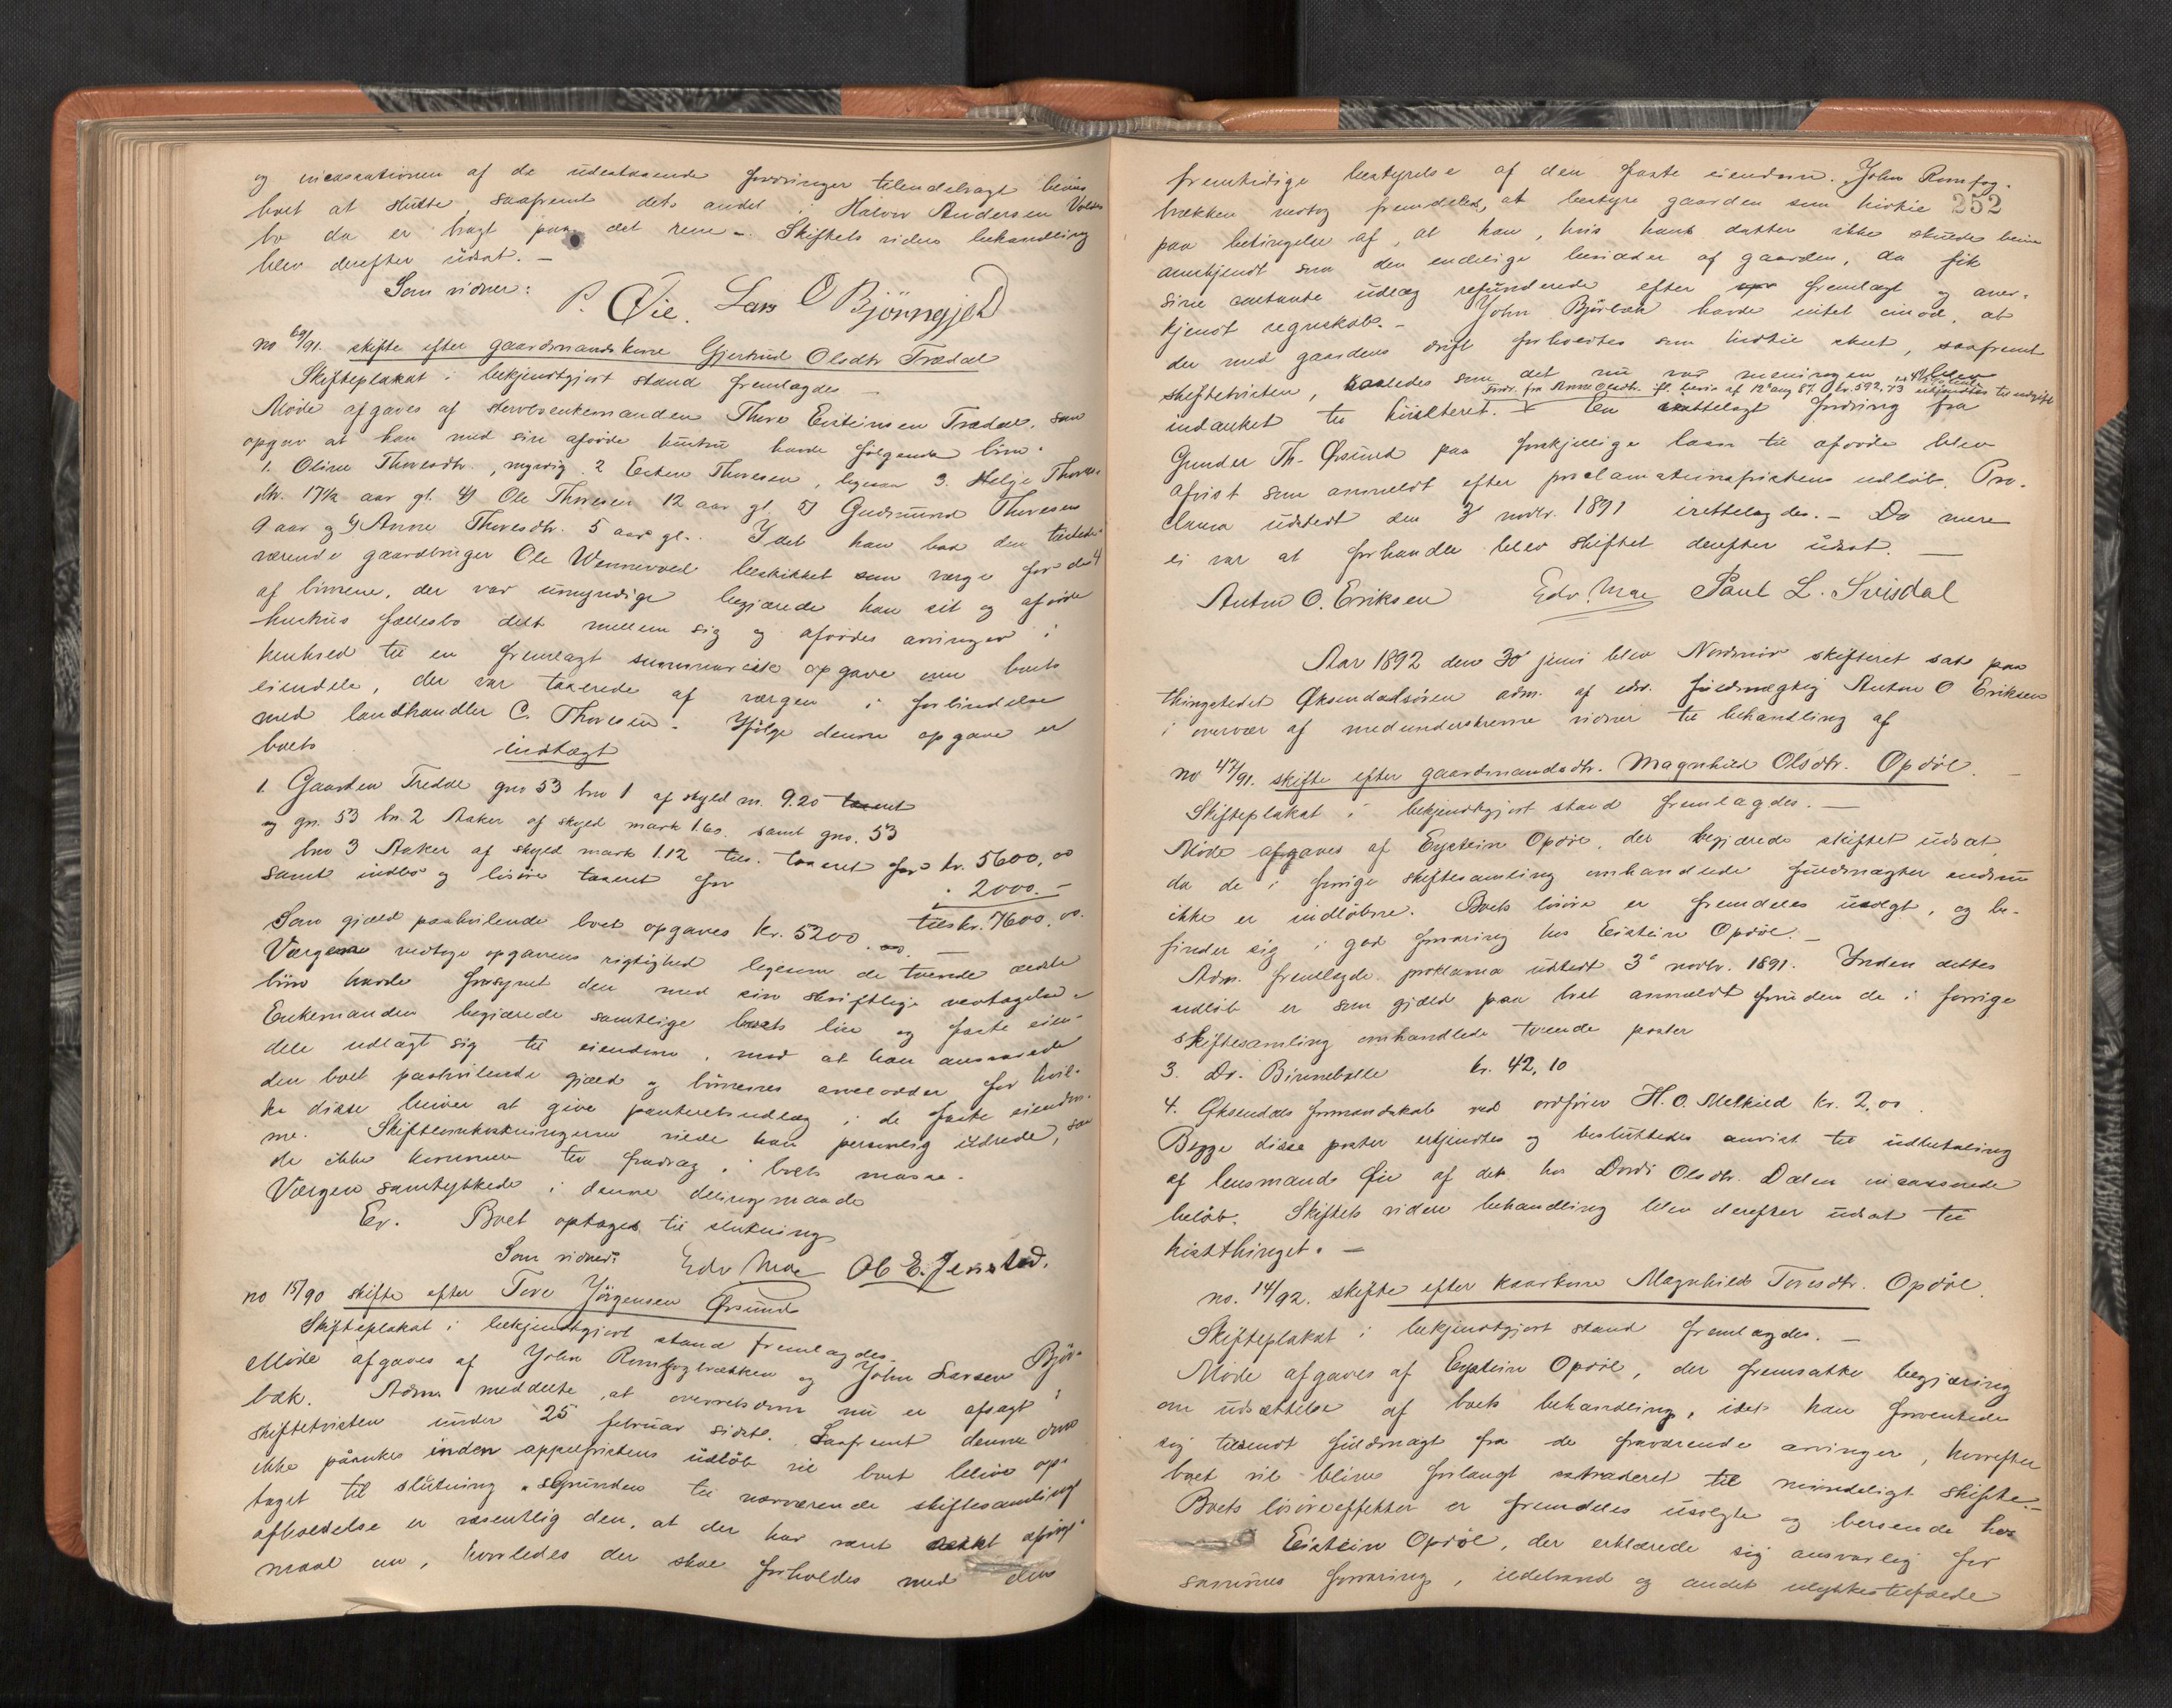 og incassationen af de udestaaende fordringer tilendebragt
boet at slutte, saafremt dets andel i Halvor Andersen
bo da er bragt paa det rene. Skiftets videre behandling
blev derefter udsat. —
Som vidner: P. Øie. Lars O Björnegjed
no 69/91. skifte efter gaardmandskone Gjertrud Olsdtr Trædal
Skifteplakat i bekjendtgjort stand fremlagdes —
Møde afgaves af stervboenkemanden Thore Eisteinsen Trædal, som
opgav at han med sin afdøde hustru havde følgende børn:
1. Oline Thoresdtr., myndig. 2 Esten Thoresen, ligesaa 3. Helge Thores-
dtr. 17½ aar gl. 4) Ole Thoresen 12 aar gl. 5) Gudmund Thoresen
9 aar og 6) Anne Thoresdtr. 5 aar gl. Idet han bad den tilstede-
værende gaardbruger Ole Wennevold beskikket som værge for de 4
af børnene, der var umyndige begjærede han sit og afdøde
hustrus fællesbo delt mellem sig og afdødes arvinger i
henhold til en fremlagt summarisk opgave over boets
eiendele, der var taxerede af værgen i forbindelse
med landhandler C. Thoresen. Ifølge denne opgave er
boets indtægt
1. Gaarden Tredal gno 53 bno 1 af skyld m. 9.20 taxeret
og gn. 53 bn. 2 Aaker af skyld mark 1.60. samt gno. 53
bno 3 Aaker af skyld mark 1.12 tils. taxeret for kr. 5600,00
samt indbo og løsøre taxeret for " 2000. —
tils kr. 7600.00.
Som gjæld paahvilende boet opgaves kr. 5200.00. —
Værgen vedtog opgavens rigtighed ligesom de tvende ældste
børn havde forsynet den med sin skriftlige vedtagelse.
Enkemanden begjærede samtlige boets løse og faste eien-
dele udlagt sig til eiendom, mod at han ansvarede
den boet paahvilende gjæld og børnenes arvelodder for hvil-
ke disse bliver at give panteretsudlæg i de faste eiendom-
me. Skifteomkostningerne vilde han personlig udrede, saa
de ikke kommer til fradrag i boets masse.
Værgen samtykkede i denne delingsmaade
Er. Boet optages til slutning
Som vidner: Edv Moe Ole E. Jenstad.
no 15/90 skifte efter Tore Jörgensen Ørsund
Skifteplakat i bekjendtgjort stand fremlagdes.
Møde afgaves af John Romfogbrækken og John Larsen Bjør-
bæk. Adm meddelte, at overretsdom nu er afsagt i
skiftetvisten under 25 februar sidstl. Saafremt denne dom
ikke påankes inden appelfristens udløb vil boet blive op-
taget til slutning. Grunden til nærværende skiftesamlings
afholdelse er væsentlig den, at der har været reist spörgs-
maal om, hvorledes der skal forholdes med den
252
fremtidige bestyrelse af den faste eiendom. John Romfog-
brækken vedtog fremdeles, at bestyre gaarden som hidtil
paa betingelse af, at han, hvis hans datter ikke skulde blive
anerkjendt som den endelige besidder af gaarden, da fik
sine contante udlæg refunderede efter fremlagt og aner-
kjendt regnskab. — John Björbæk havde intet imod, at
der med gaardens drift forholdtes som hidtil skeet, saafremt
skiftetvisten, saaledes som det nu var meningen blev
indanket til höiesteret. En irettelagt fordring fra
Gunder Th. Ørsund paa forskjellige laan til afdøde blev
afvist som anmeldt efter proclamationsfristens udløb. Pro-
clama udstedt den 3' novbr. 1891 irettelagdes. — Da mere
ei var at forhandle blev skiftet derefter udsat. —
Anton O. Eriksen Edv. Moe Paul L. Svisdal
Aar 1892 den 30' juni blev Nordmör skifteret sat paa
thingstedet Øksendalsören adm. af edsv. fuldmægtig Anton O Eriksen
i overvær af medunderskrevne vidner til behandling af
no 47/91. skifte efter gaardmandsdtr. Magnhild Olsdtr. Opdöl. —
Skifteplakat i bekjendtgjort stand fremlagdes. —
Møde afgaves af Eystein Opdöl, der begjærede skiftet udsat,
da de i forrige skiftesamling omhandlede fuldmagter endnu
ikke er indløbne. Boets løsøre er fremdeles usolgt, og be-
finder sig i god forvaring hos Eistein Opdöl. —
Adm. fremlagde proklama udstedt 3' novbr. 1891. Inden dettes
udløb er som gjæld paa boet anmeldt foruden de i forrige
skiftesamling omhandlede tvende poster
3. Dr. Binneballe kr. 42,10
4. Øksendals formandskab ved ordfører H. O. Melkild kr. 2,00.
Begge disse poster erkjendtes og besluttedes anvist til udbetaling
af lensmand Øie af det hos Dordi Olsdtr. Dalen incasserede
beløb. Skiftets videre behandling blev derefter udsat til
høstthinget. —
no. 14/92. skifte efter kaarkone Magnhild Toresdtr. Opdöl.
Skifteplakat i bekjendtgjort stand fremlagdes. —
Møde afgaves af Eystein Opdöl, der fremsatte begjæring
om udsættelse af boets behandling, idet han forventede
sig tilsendt fuldmagt fra de fraværende arvinger, hvorefter
boet vil blive forlangt extraderet til mindeligt skifte. —
Boets løsøreeffekter er fremdeles usolgte og beroende hos
Eistein Opdöl, der erklærede sig ansvarlig for
sammes forvaring, ildebrand og andet ulykkestilfælde